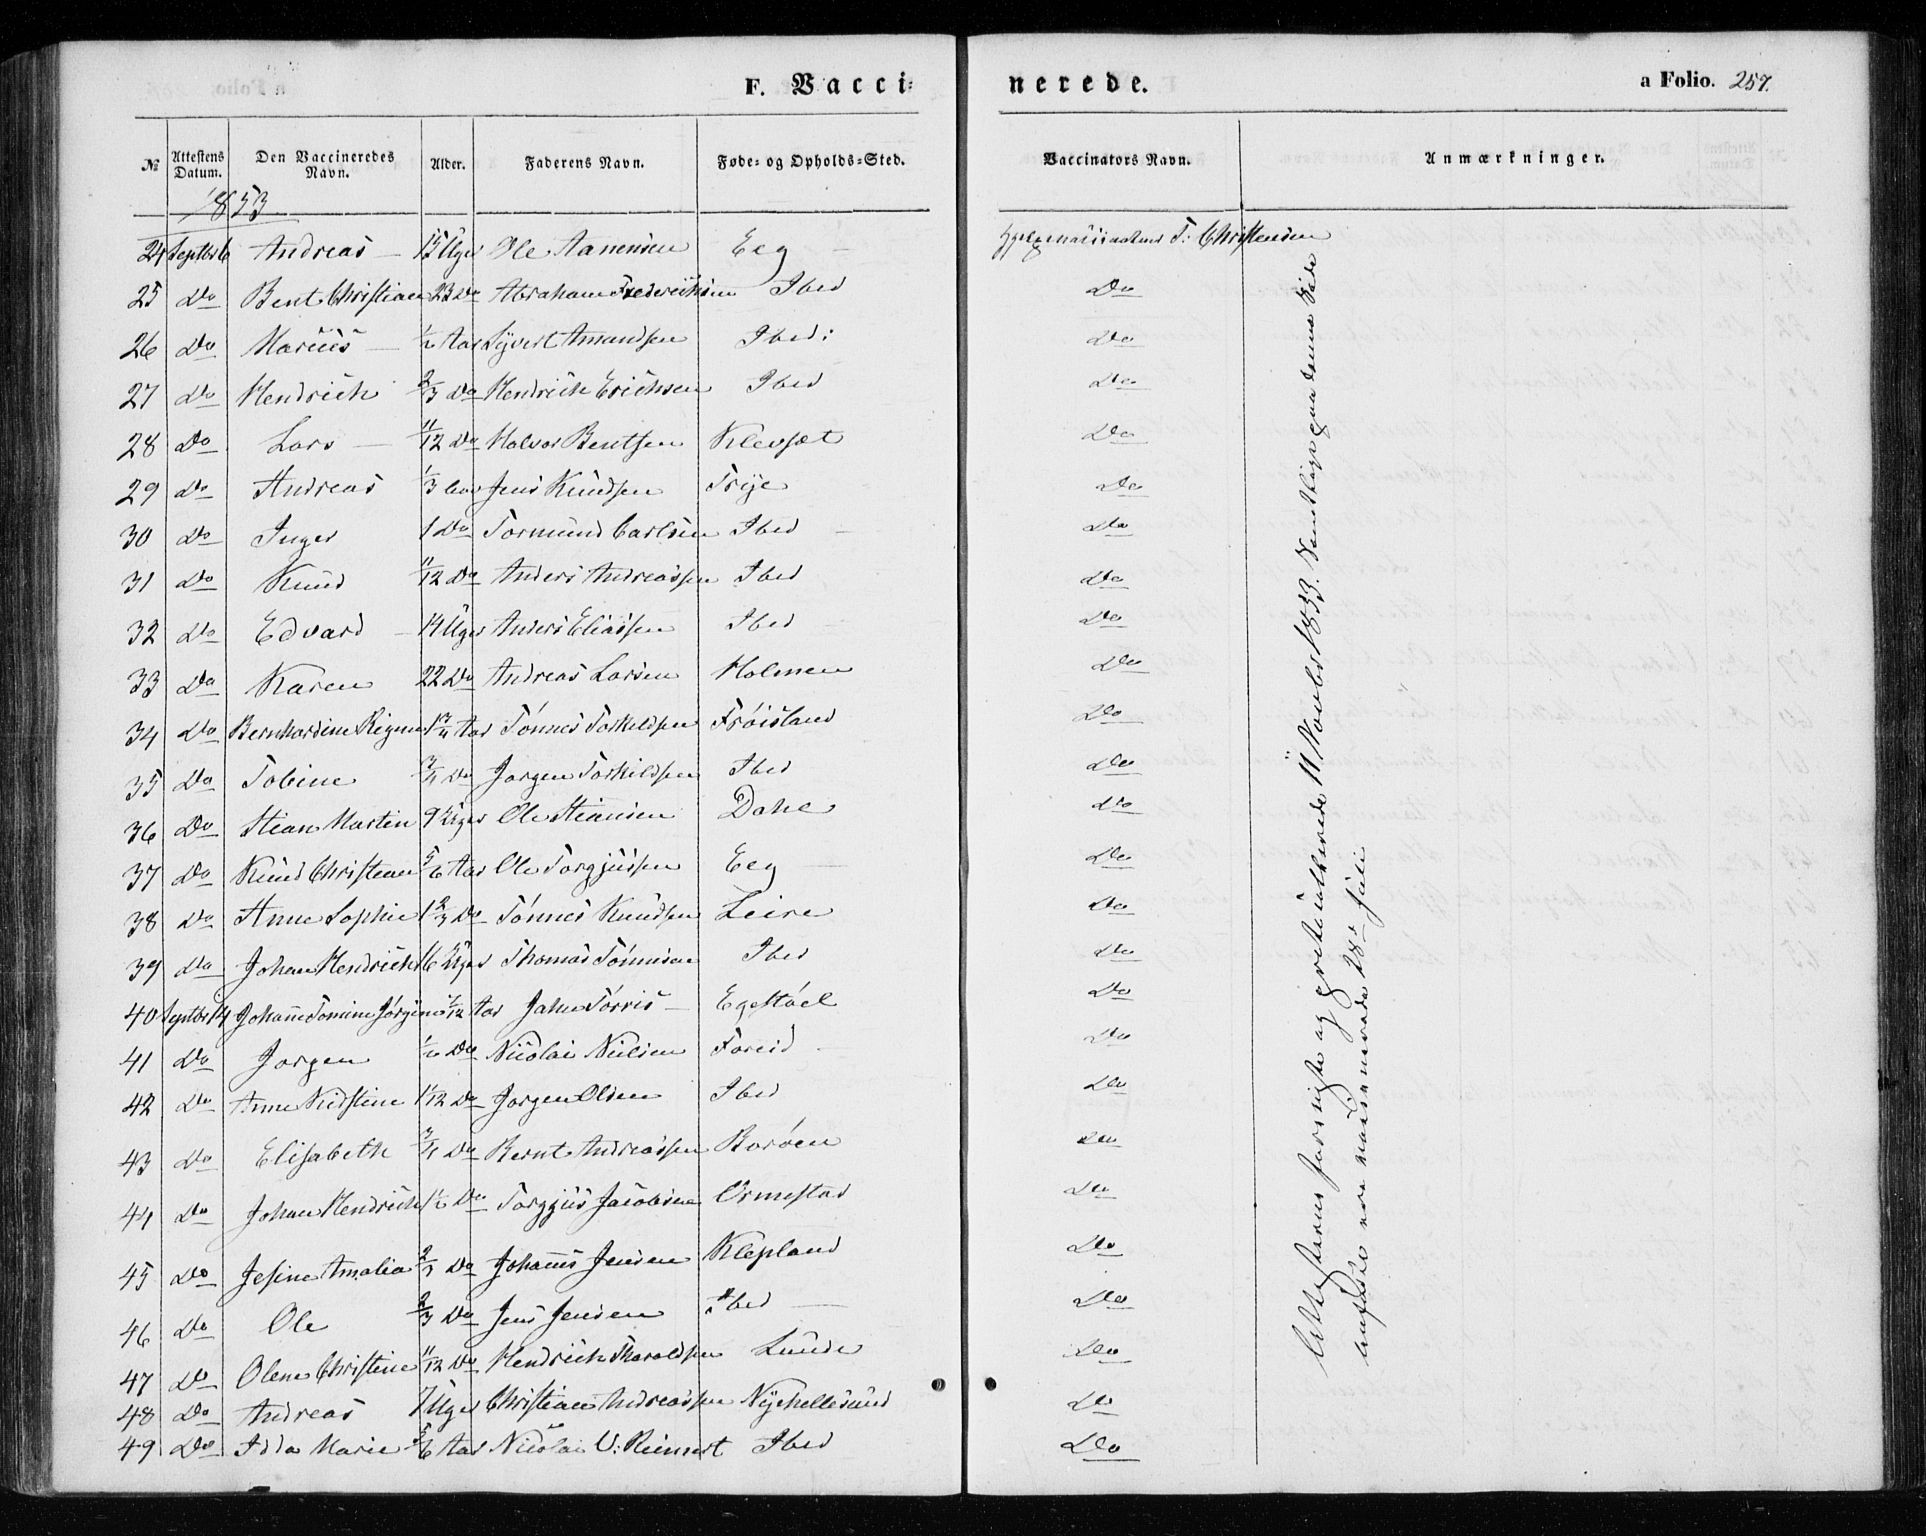 F. Vacci=
nerede.
a Folio. 257.
No Attestens Datum. Den Vaccineredes Navn. Alder. Faderens Navn. Føde= og Opholds=Sted. Vaccinators Navn. Anmærkninger.
1853
24 Septbr 6 Andreas 15 Uger Ole Aanensen Eeg T: Christensen
25 Do Bent Christian 23 Do Abraham Frederichsen Ibed Do
26 Do Marius ½ Aar Syvert Amundsen Ibed: Do
27 Do Hendrich 2/3 Do Hendrich Erichsen Ibed Do
28 Do Lars 11/12 Do Halvor Bentsen Klevset Do
29 Do Andreas 1/3 Jens Knudsen Trye Do
30 Do Inger 1 Do Tormund Carlsen Ibed Do
31 Do Knud 11/12 Do Anders Andreassen Ibed Do
32 Do Edvard 14 Uger Anders Eliassen Ibed Do
33 Do Karen 22 Do Andreas Larsen Holmen Do
34 Do Bernhardine Regine 1 3/4 Aar Tønnes Torkildsen Frøisland Do
35 Do Tobine 3/4 Do Jørgen Torkildsen Ibed Do
36 Do Stian Martin 9 Uger Ole Stiansen Dahe Do
37 Do Knud Christian 5/6 Aar Ole Torgjussen Eeg Do
38 Do Anne Sophie 1 2/3 Do Tønnes Knudsen Leire Do
39 Do Johan Hendrich 16 Uger Thomas Tønnesen Ibed Do
40 Septbr 14 Johanne Tomine Jørgine 7/12 Aar Jahn Torris Egestøel Do
41 Do Jørgen ½ Do Nicolai Nielsen Foreid Do
42 Do Anne Kirstine 1 1/12 Do Jørgen Olsen Ibed Do
43 Do Elisabeth 3/4 Do Bernt Andreassen Borøen Do
44 Do Johan Hendrich 1½ Do Torgjus Jacobsen Ormestad Do
45 Do Jesine Amalia 2/3 Do Johannes Jensen Klepland Do
46 Do Ole 2/3 Do Jens Jensen Ibed Do
47 Do Olene Christine 11/12 Do Hendrich Tharaldsen Lunde Do
48 Do Andreas 7 Uger Christian Andreassen Nyehellesund Do
49 Do Adda Marie 5/6 Aar Nicolai V: Reinert Ibed Do
Attesterne forevigste og 11 Novbr 1853. paa denne Side
ere 28de Juli